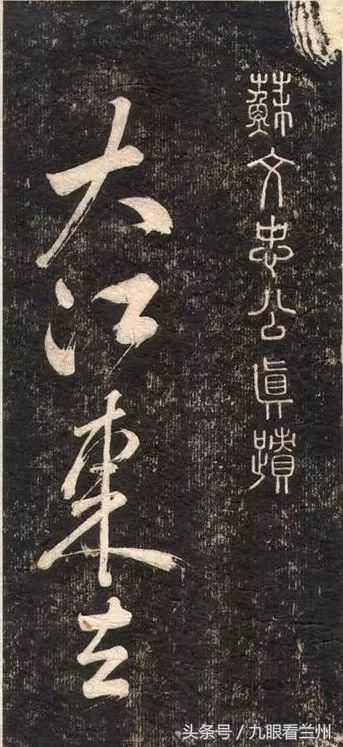 蘇文忠公眞蹟
大江東去
头条号/九眼看兰州